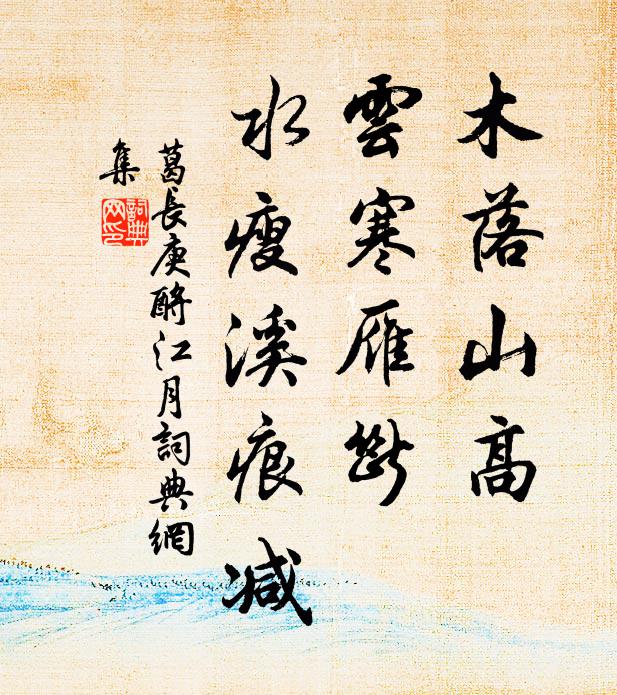 木落山高
雲寒雁斷
水瘦溪痕減
葛長庚酹江月詞典網
集
詞典
网印